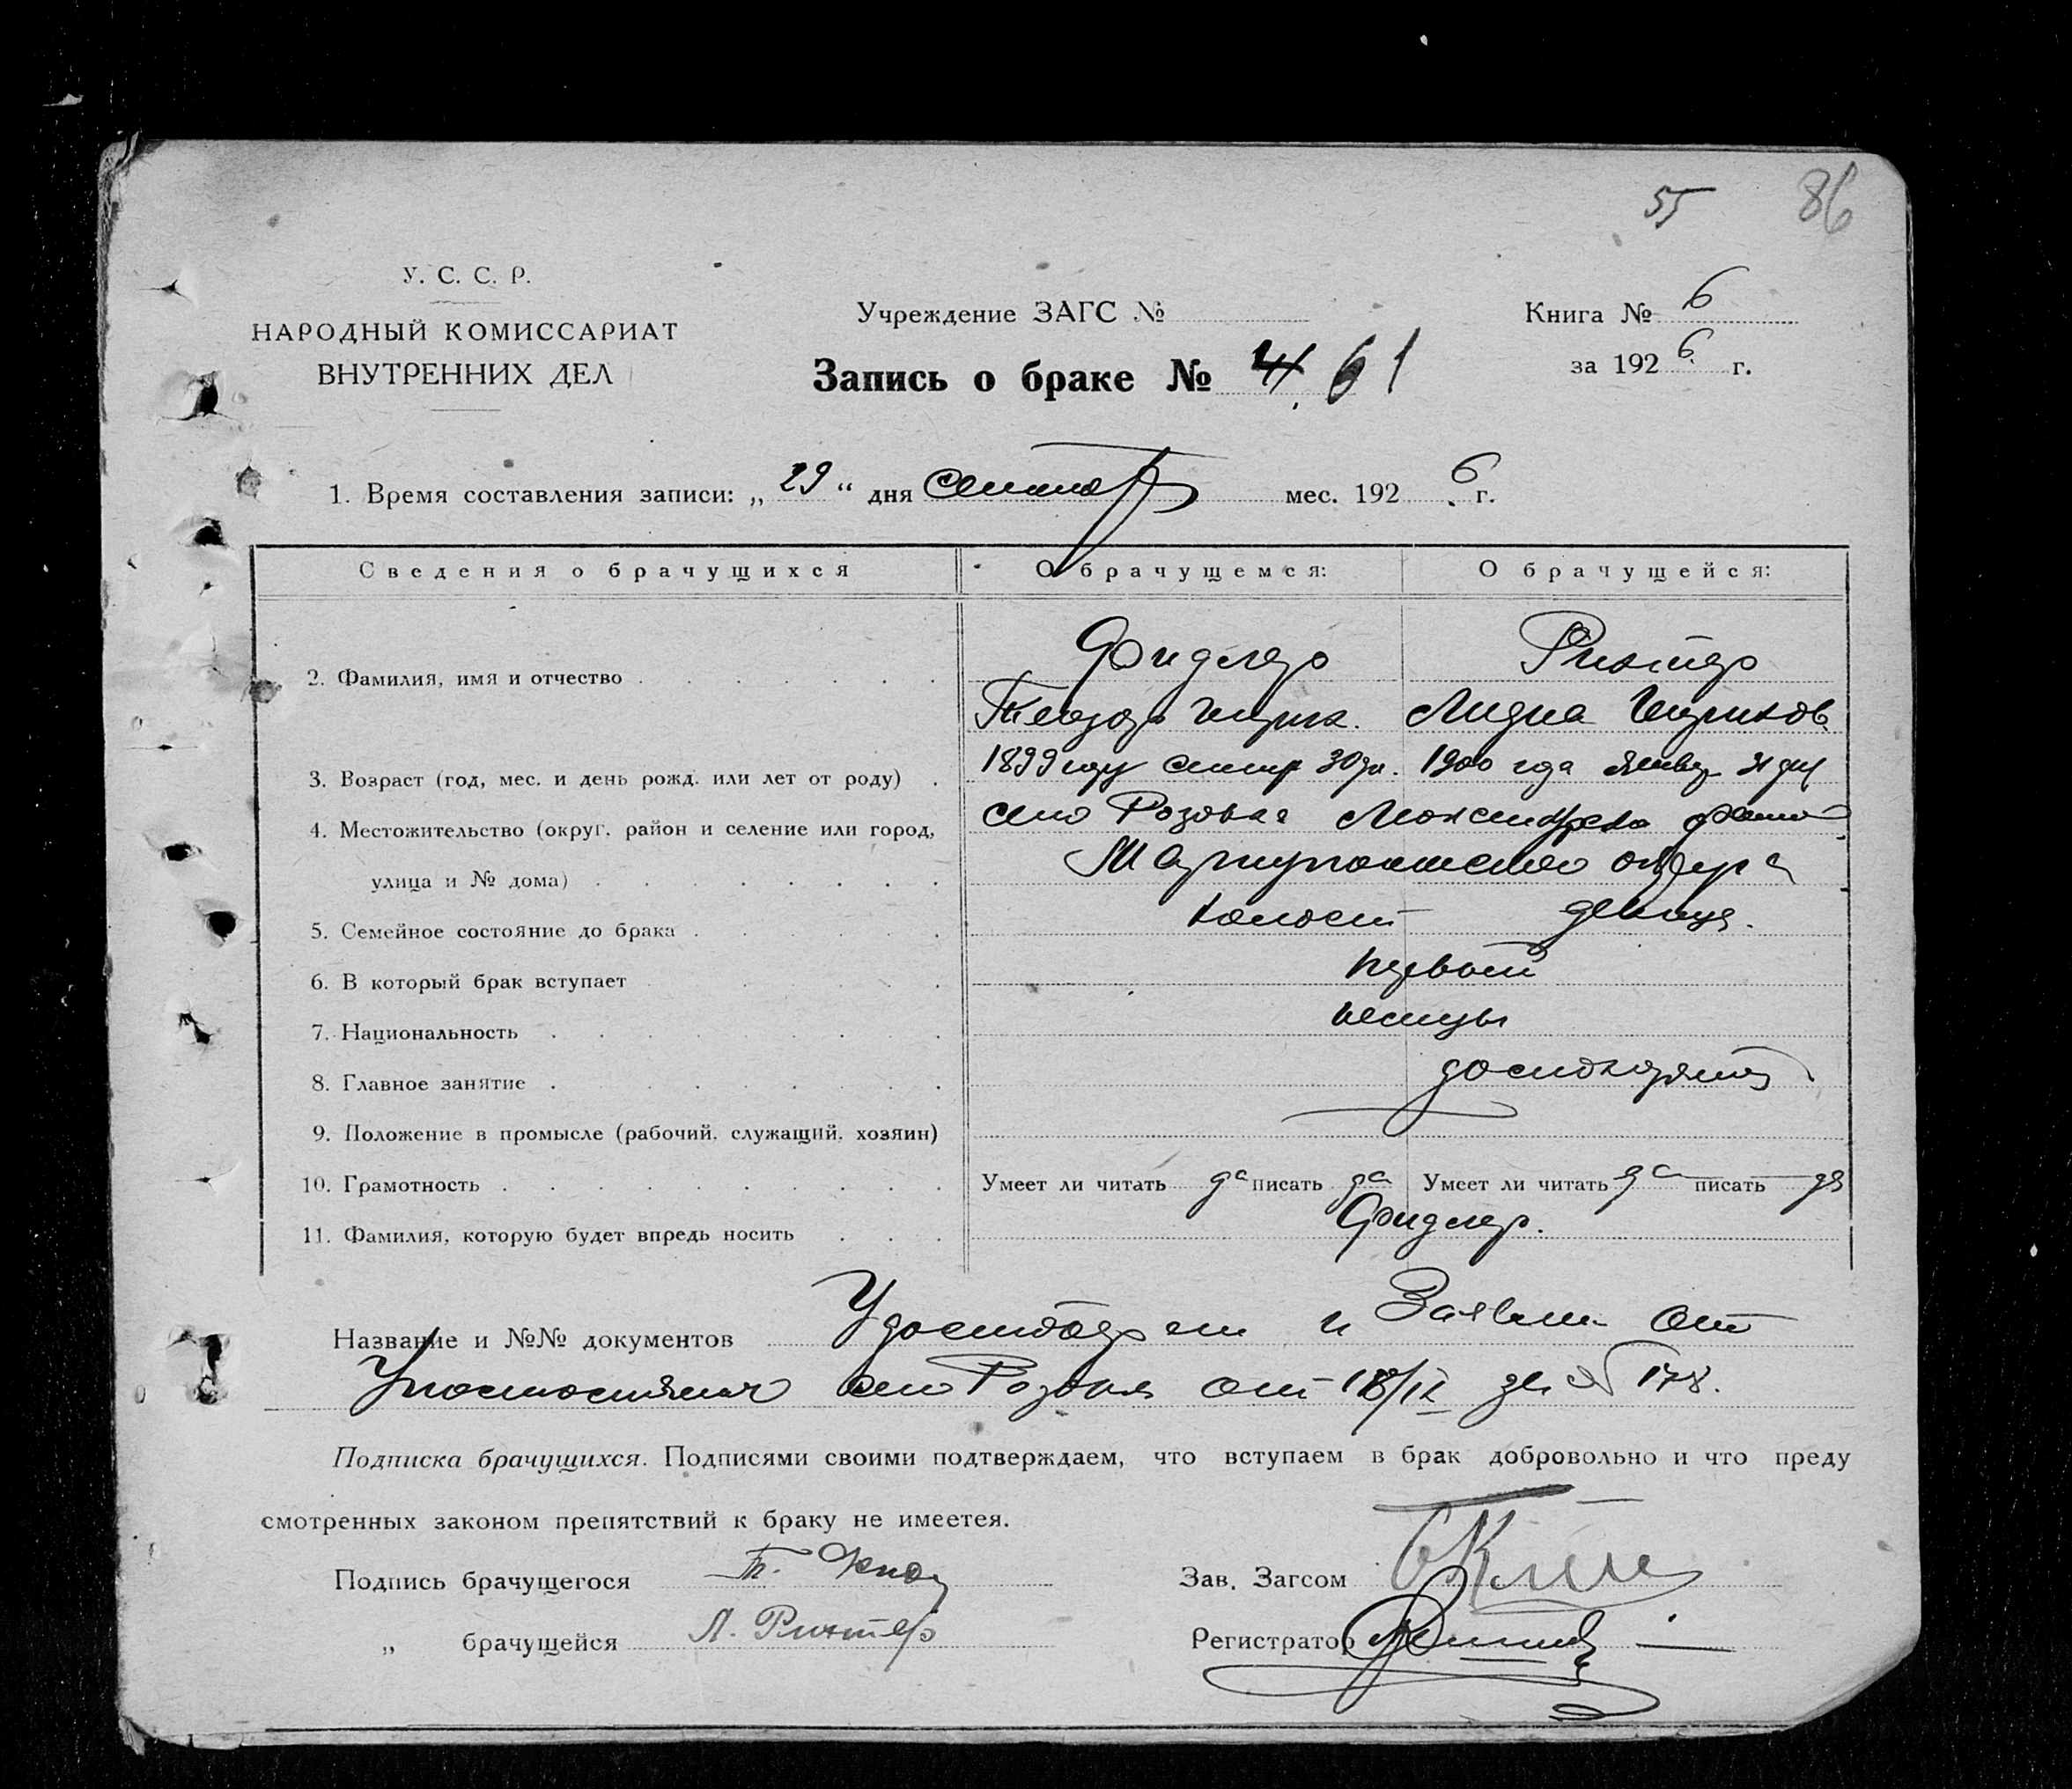 55 86
У. С. С. Р.
НАРОДНЫЙ КОМИССАРИАТ
ВНУТРЕННИХ ДЕЛ
Учреждение ЗАГС №
Книга № 6
Запись о браке № 61
за 1926 г.
1. Время составления записи: „ 29 “ дня сентяб мес. 1926 г.
Сведения о брачущихся О брачущемся: О брачущейся:
2. Фамилия, имя и отчество Фидлер Рихтер
Теодор Генрих. Лидиа Генрихов
3. Возраст (год, мес. и день рожд. или лет от роду) 1899 году сентяр 30 дн. 1900 года Январ 31 дня
4. Местожительство (округ, район и селение или город, село Розовка Люксембург
улица и № дома) Мариупольского округа
5. Семейное состояние до брака холост девица.
6. В который брак вступает первый
7. Национальность немцы
8. Главное занятие
9. Положение в промысле (рабочий, служащий, хозяин)
10. Грамотность Умеет ли читать да писать да Умеет ли читать да писать да
11. Фамилия, которую будет впредь носить Фидлер.
Название и №№ документов Удостовер и Заявлен от
село от 18/IX за № 178.
Подписка брачущихся. Подписями своими подтверждаем, что вступаем в брак добровольно и что преду
смотренных законом препятствий к браку не имеетея.
Подпись брачущегося Т.
Зав. Загсом
„ брачущейся Л. Рихтер
Регистратор